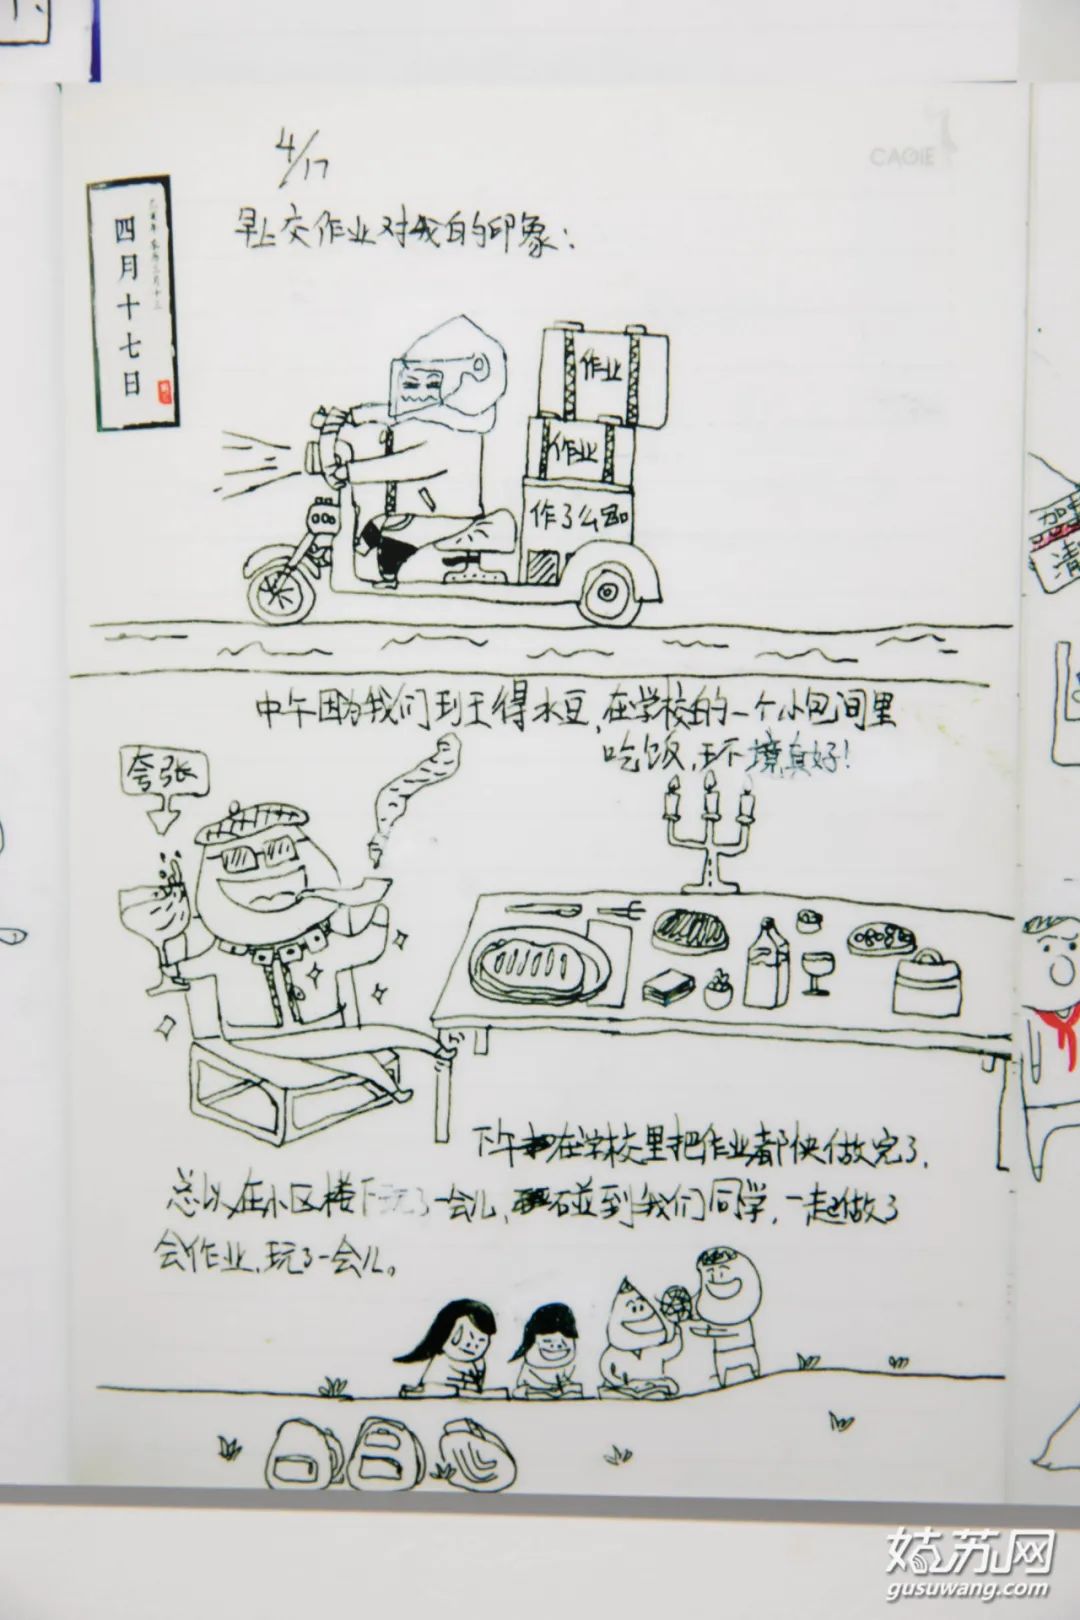 4/17
CAGIE
四月十七日
早上交作业对我自的印象：
作业
作业
作了么
中午因为我们到王得水豆，在学校的一个小包间里
吃饭，环境真好！
夸张
下午在学校里把作业都快做完了，
总以在小区楼下玩了一会儿，碰到我们同学，一起做了
会作业，玩了一会儿。
加
清
姑苏网
gusuwang.com